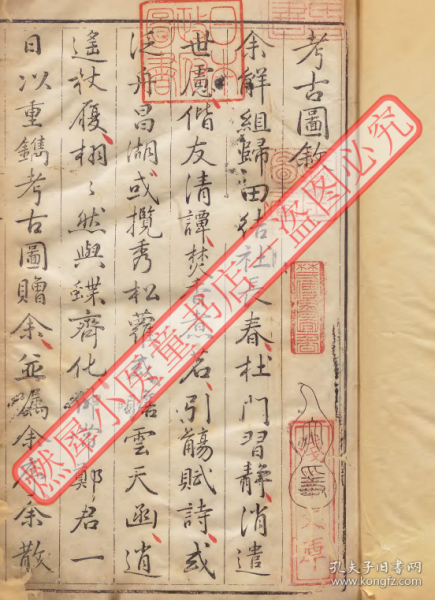 考古圖敘
余解組歸田結社長春杜門習靜消遣
世慮偕友清譚焚香煮茗引觴賦詩或
泛舟昌湖或攬秀松蘿雲天函消
遙杖履栩々然與蝶齊化鄭君一
日以重鐫考古圖贈余並屬余余散
燃犀小医童书店—盗图必究
孔夫子旧书网
www.kongfz.com